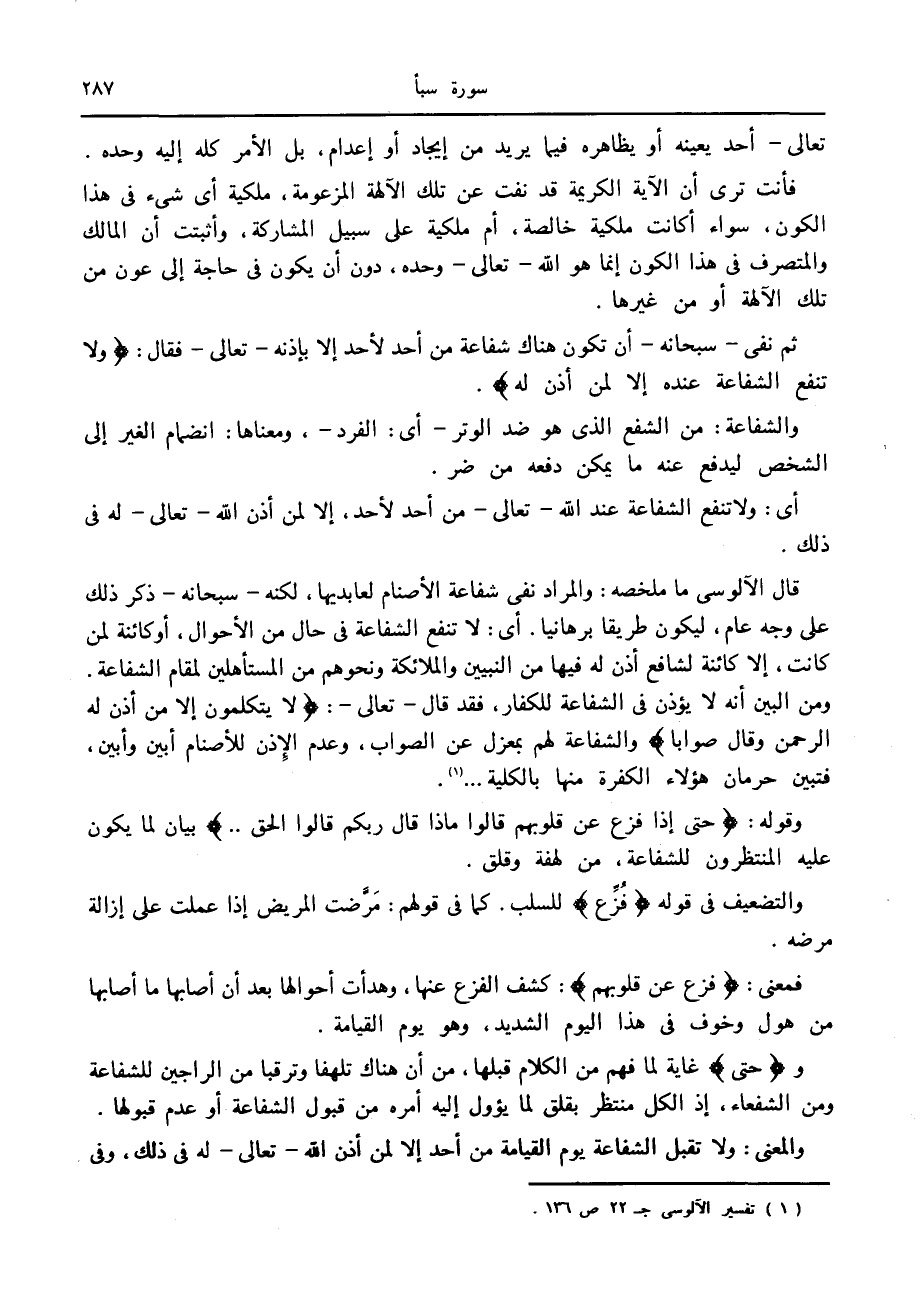 سورة سبأ ٢٨٧
تعالى – أحد يعينه أو يظاهره فيما يريد من إيجاد أو إعدام، بل الأمر كله إليه وحده .
فأنت ترى أن الآية الكريمة قد نفت عن تلك الآلهة المزعومة، ملكية أى شىء فى هذا
الكون، سواء أكانت ملكية خالصة، أم ملكية على سبيل المشاركة، وأثبتت أن المالك
والمتصرف فى هذا الكون إنما هو الله – تعالى – وحده، دون أن يكون فى حاجة إلى عون من
تلك الآلهة أو من غيرها .
ثم نفى – سبحانه – أن تكون هناك شفاعة من أحد لأحد إلا بإذنه – تعالى – فقال : ﴿ ولا
تنفع الشفاعة عنده إلا لمن أذن له ﴾ .
والشفاعة : من الشفع الذى هو ضد الوتر – أى : الفرد – ، ومعناها : انضمام الغير إلى
الشخص ليدفع عنه ما يمكن دفعه من ضر .
أى : ولاتنفع الشفاعة عند الله – تعالى – من أحد لأحد، إلا لمن أذن الله – تعالى – له فى
ذلك .
قال الآلوسى ما ملخصه : والمراد نفى شفاعة الأصنام لعابديها، لكنه – سبحانه – ذكر ذلك
على وجه عام، ليكون طريقا برهانيا. أى : لا تنفع الشفاعة فى حال من الأحوال، أوكائنة لمن
كانت، إلا كائنة لشافع أذن له فيها من النبيين والملائكة ونحوهم من المستأهلين لمقام الشفاعة.
ومن البين أنه لا يؤذن فى الشفاعة للكفار، فقد قال – تعالى – : ﴿ لا يتكلمون إلا من أذن له
الرحمن وقال صوابا ﴾ والشفاعة لهم بمعزل عن الصواب، وعدم الإِذن للأصنام أبين وأبين،
فتبين حرمان هؤلاء الكفرة منها بالكلية ...(١).
وقوله : ﴿ حتى إذا فزع عن قلوبهم قالوا ماذا قال ربكم قالوا الحق .. ﴾ بيان لما يكون
عليه المنتظرون للشفاعة، من لهفة وقلق .
والتضعيف فى قوله ﴿ فُزِّع ﴾ للسلب. كما فى قولهم : مَرَّضت المريض إذا عملت على إزالة
مرضه .
فمعنى : ﴿ فزع عن قلوبهم ﴾ : كشف الفزع عنها، وهدأت أحوالها بعد أن أصابها ما أصابها
من هول وخوف فى هذا اليوم الشديد، وهو يوم القيامة .
و ﴿ حتى ﴾ غاية لما فهم من الكلام قبلها، من أن هناك تلهفا وترقبا من الراجين للشفاعة
ومن الشفعاء، إذ الكل منتظر بقلق لما يؤول إليه أمره من قبول الشفاعة أو عدم قبولها .
والمعنى : ولا تقبل الشفاعة يوم القيامة من أحد إلا لمن أذن الله – تعالى – له فى ذلك، وفى
( ١ ) تفسير الآلوسى جـ ٢٢ ص ١٣٦ .